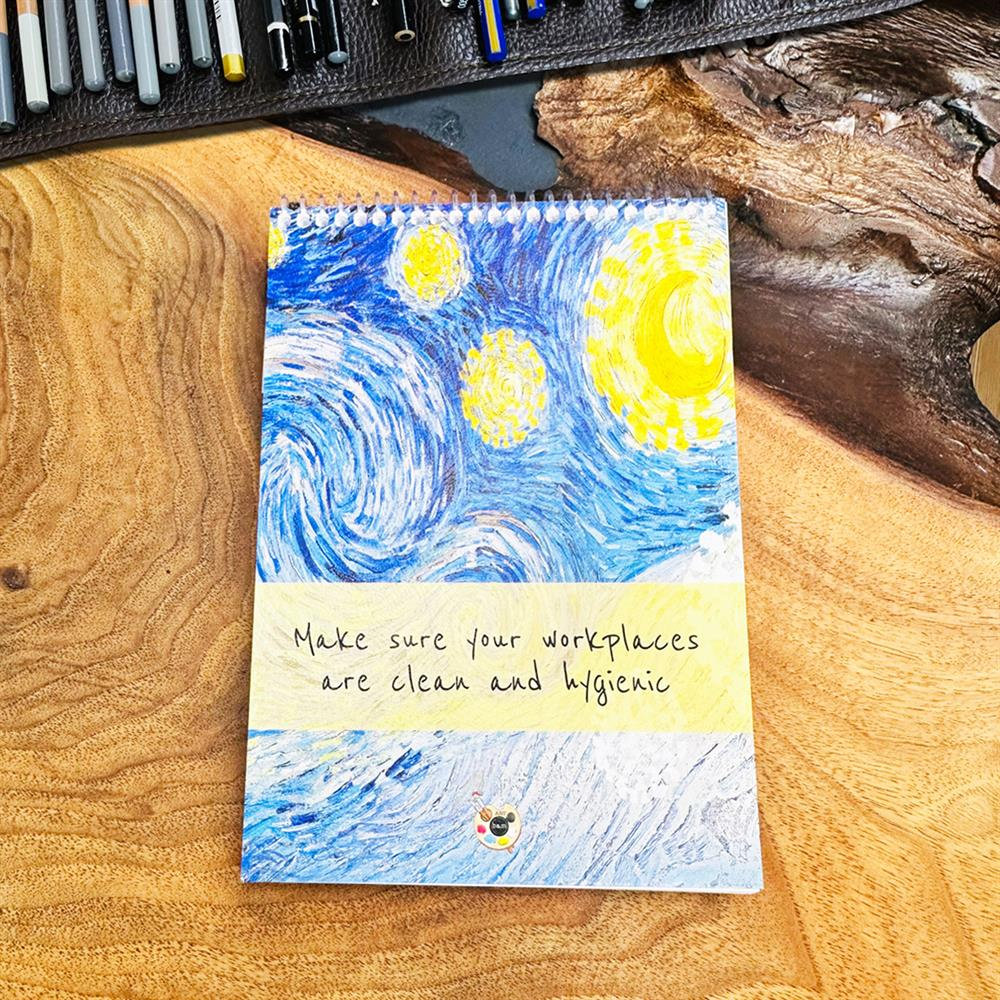 Make sure your workplaces
are clean and hygienic